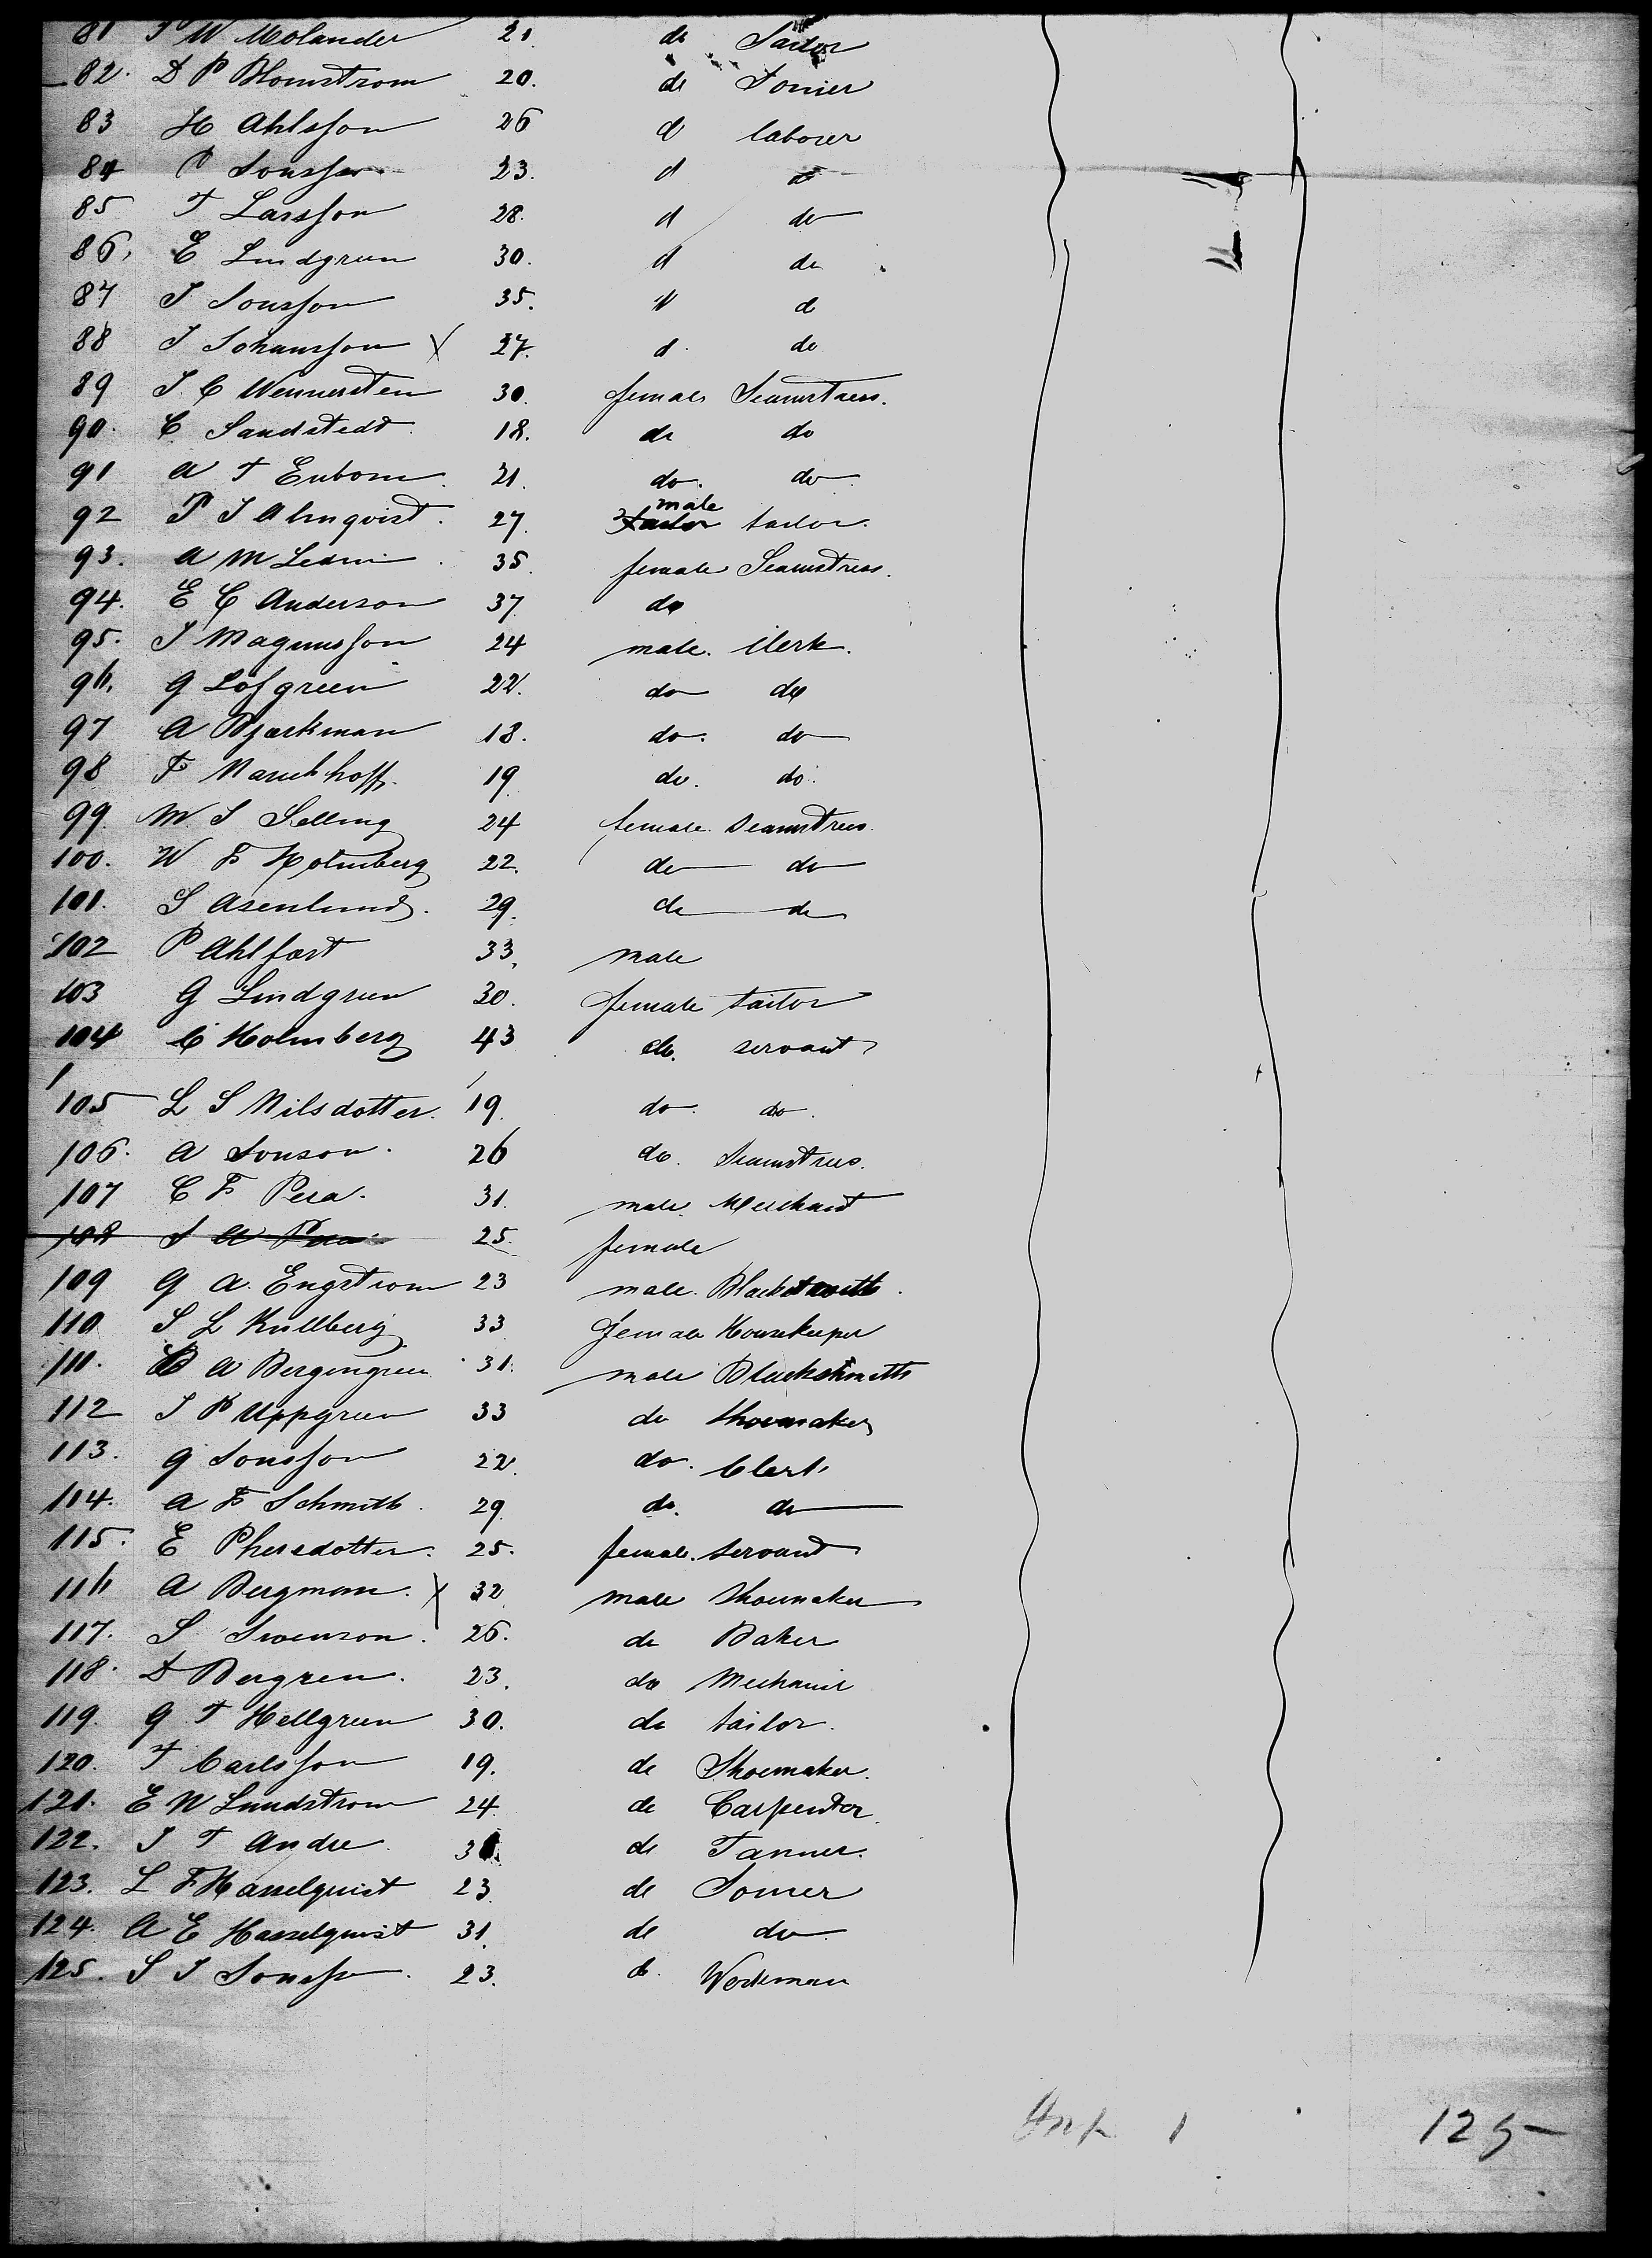 81 P W Molander 21. do Sailor
82. D P Blomstrom 20. do Joiner
83 H Ahlsson 26 d laborer
84 P Jonsson 23. d do
85 T Larsson 28. d do
86. E Lindgreen 30. d do
87 J Jonsson 35. d do
88 J Johansson X 27. d do
89 J. C Wennersten 30. female Seamstress.
90. C Sandstedt 18. do do
91 A T Enbom 21. do. do
92 P J Almqvist. 27. male tailor.
93. A M Ledin 35. female Seamstress.
94. E C Anderson 37 do
95. J Magnusson 24 male. Clerk.
96. G Lofgreen 22. do do
97 A Bjorkman 18. do. do
98 F Marschhoff. 19 do. do.
99. M. S Selling 24 female. Seamstress.
100. W F Holmberg 22. do do
101. S Asenlund. 29. do do
102 P Ahlfast 33. male
103 G Lindgreen 30. female tailor
104 C Holmberg 43 do. servant
105 L S Nilsdotter. 19. do. do.
106. A Jonson. 26 do. Seamstress.
107 C F Pera. 31. male. Merchant
108 S A Pera 25. female
109 G A. Engstrom 23 male. Blacksmith.
110 S L Kullberg 33 female Housekeeper
111. B A Bergengreen 31. male Blackshmith
112 J P Uppgreen 33 do Shoemaker
113. G Jonsson 22. do. Clerk
114. A F Schmith. 29. do. do
115. E Phersdotter. 25. female. servant
116 A Bergman. X 32 male Shoemaker
117. S Swenson. 26. do Baker
118. D Bergren. 23. do Mechanic
119. G T Hellgreen 30. do tailor.
120. T Carlsson 19. do Shoemaker.
121. E W Lundstrom 24. do Carpenter.
122. J T Andre do Tanner.
123. L F Hasselquist 23. do Joiner
124. A E Hasselquist 31. do do
125. S J Jonsson. 23. do. Workman
1 125